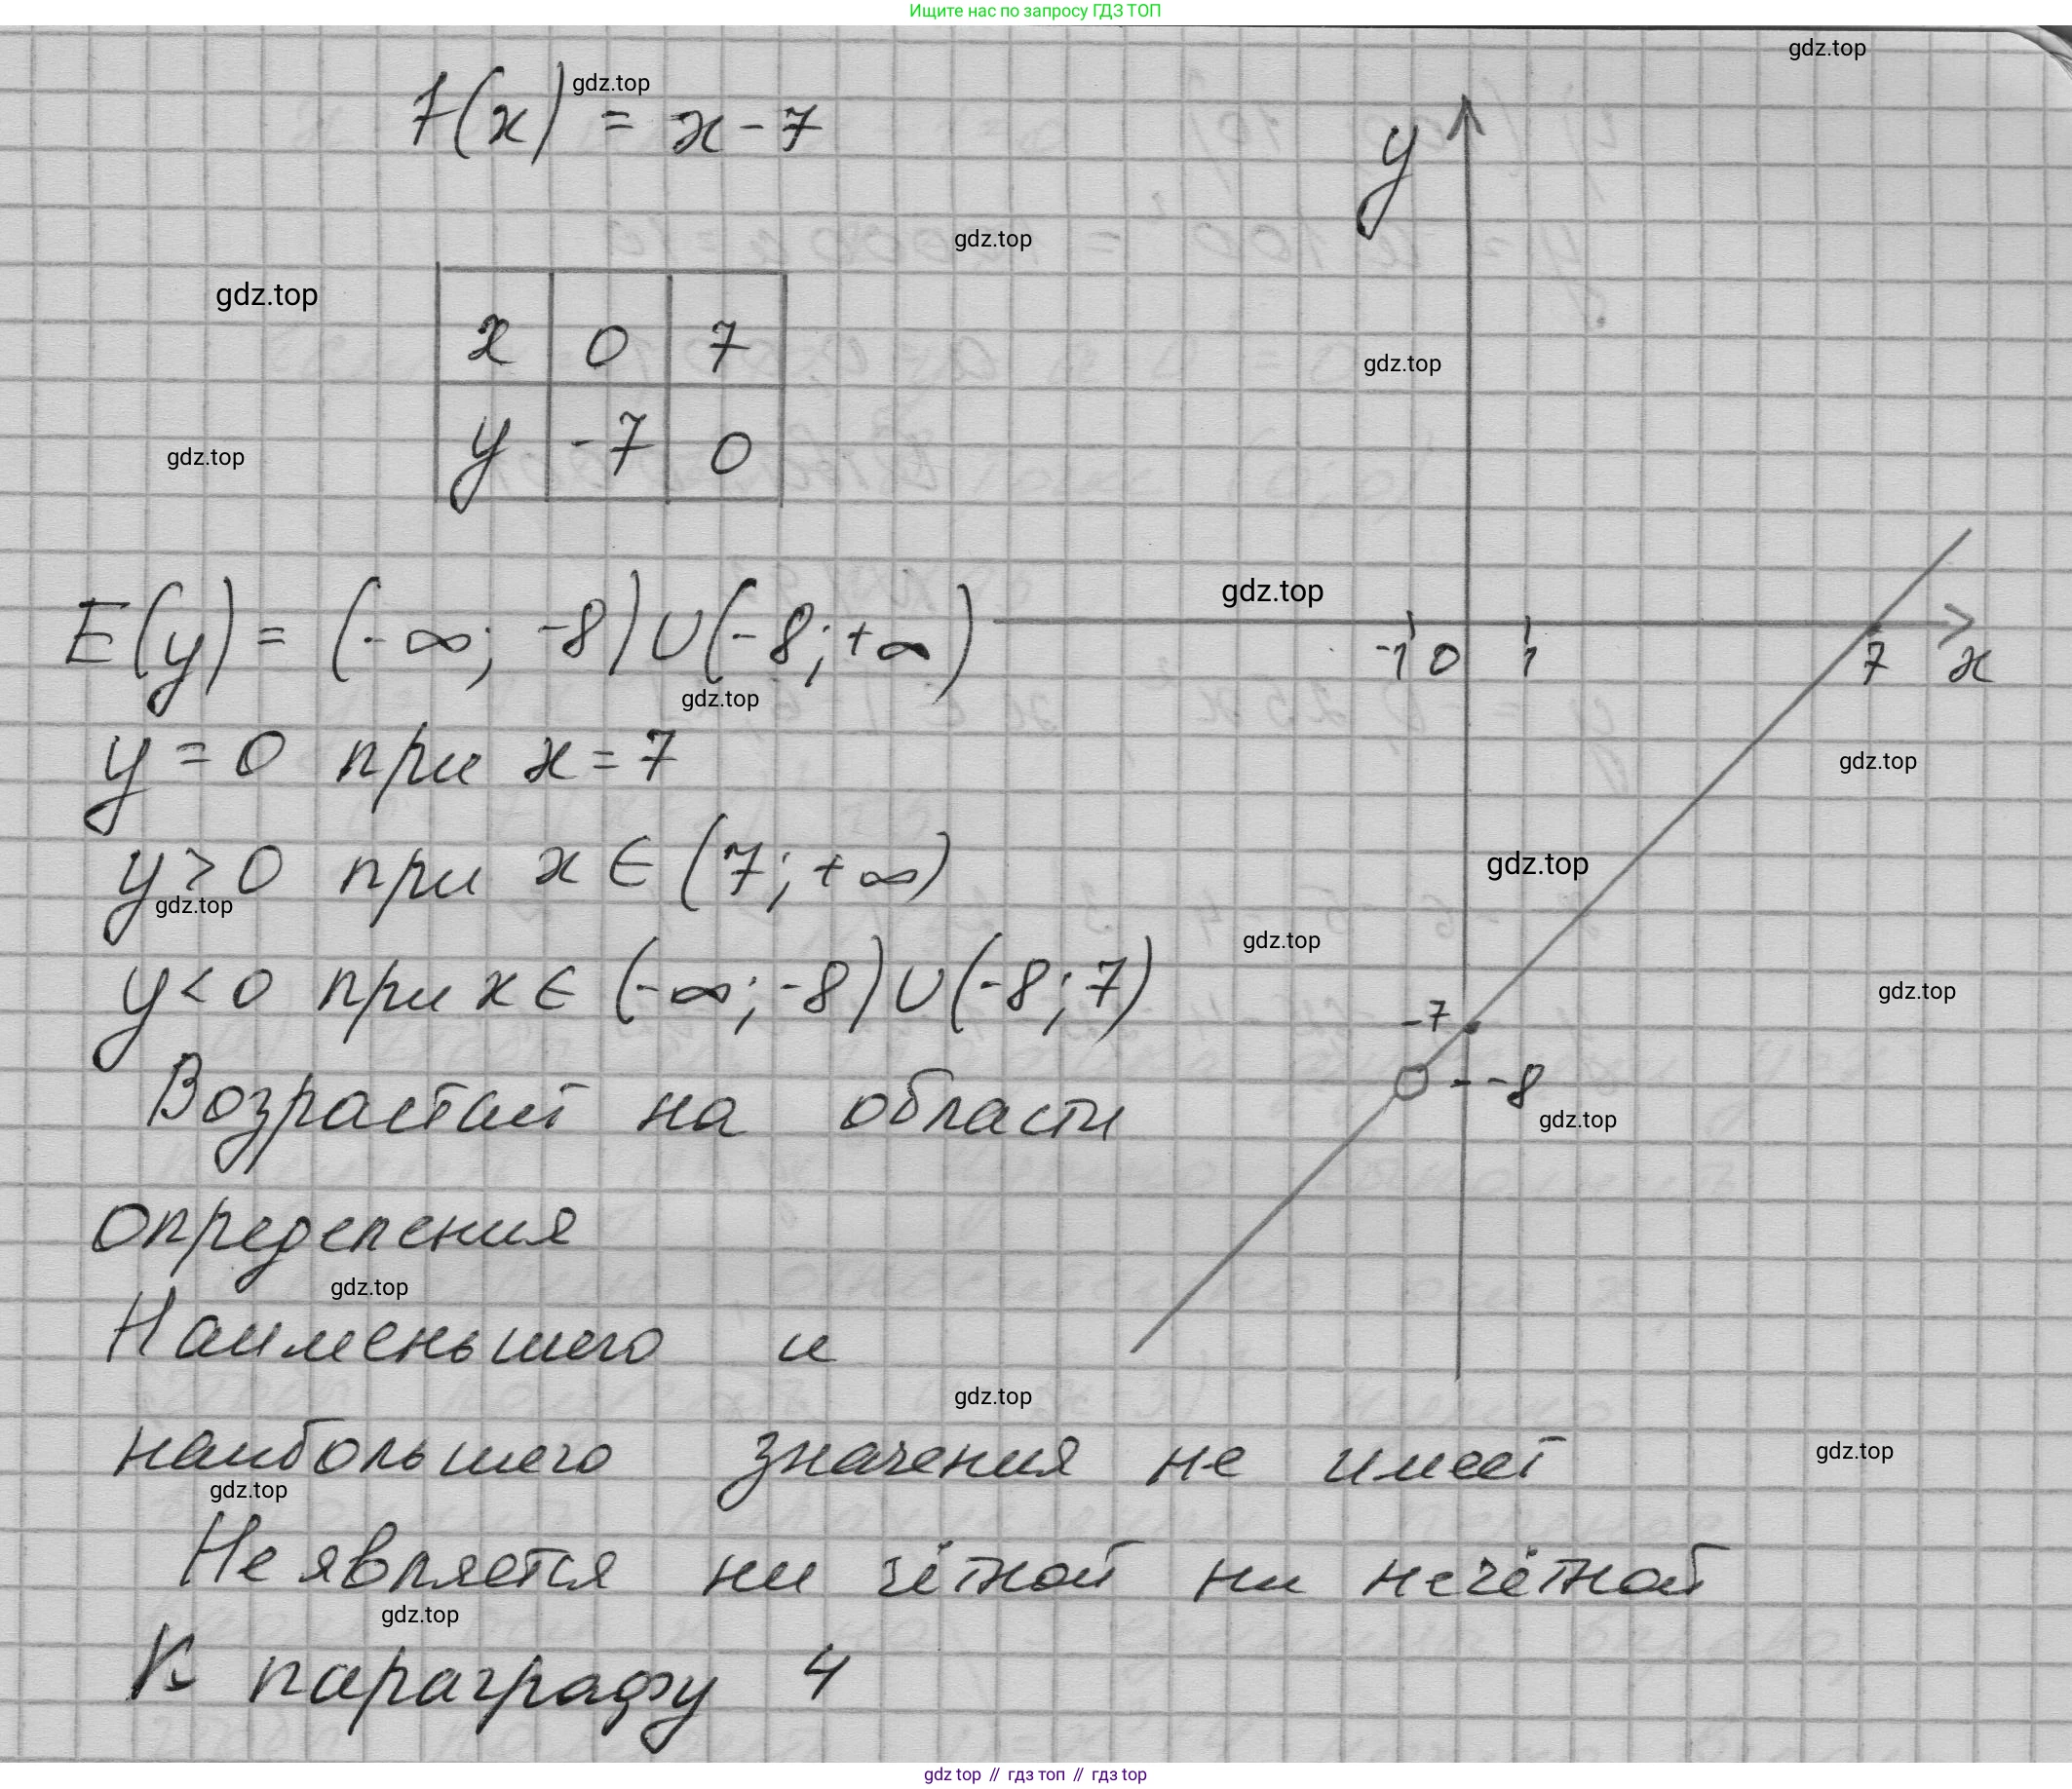 Ищите нас по запросу ГДЗ ТОП
gdz.top
f(x) = x - 7
gdz.top
y
gdz.top
gdz.top
x 0 7
gdz.top
y -7 0
gdz.top
E(y) = (-∞; -8) ∪ (-8; +∞)
gdz.top
-1 0 1 7 x
gdz.top
y = 0 при x = 7
gdz.top
y > 0 при x ∈ (7; +∞)
gdz.top
gdz.top
y < 0 при x ∈ (-∞; -8) ∪ (-8; 7)
gdz.top
gdz.top
-7
-8
gdz.top
Возрастает на области
определения
gdz.top
Наименьшего и
gdz.top
наибольшего значения не имеет
gdz.top
gdz.top
Не является ни чётной ни нечётной
gdz.top
К параграфу 4
gdz top // гдз топ // гдз top